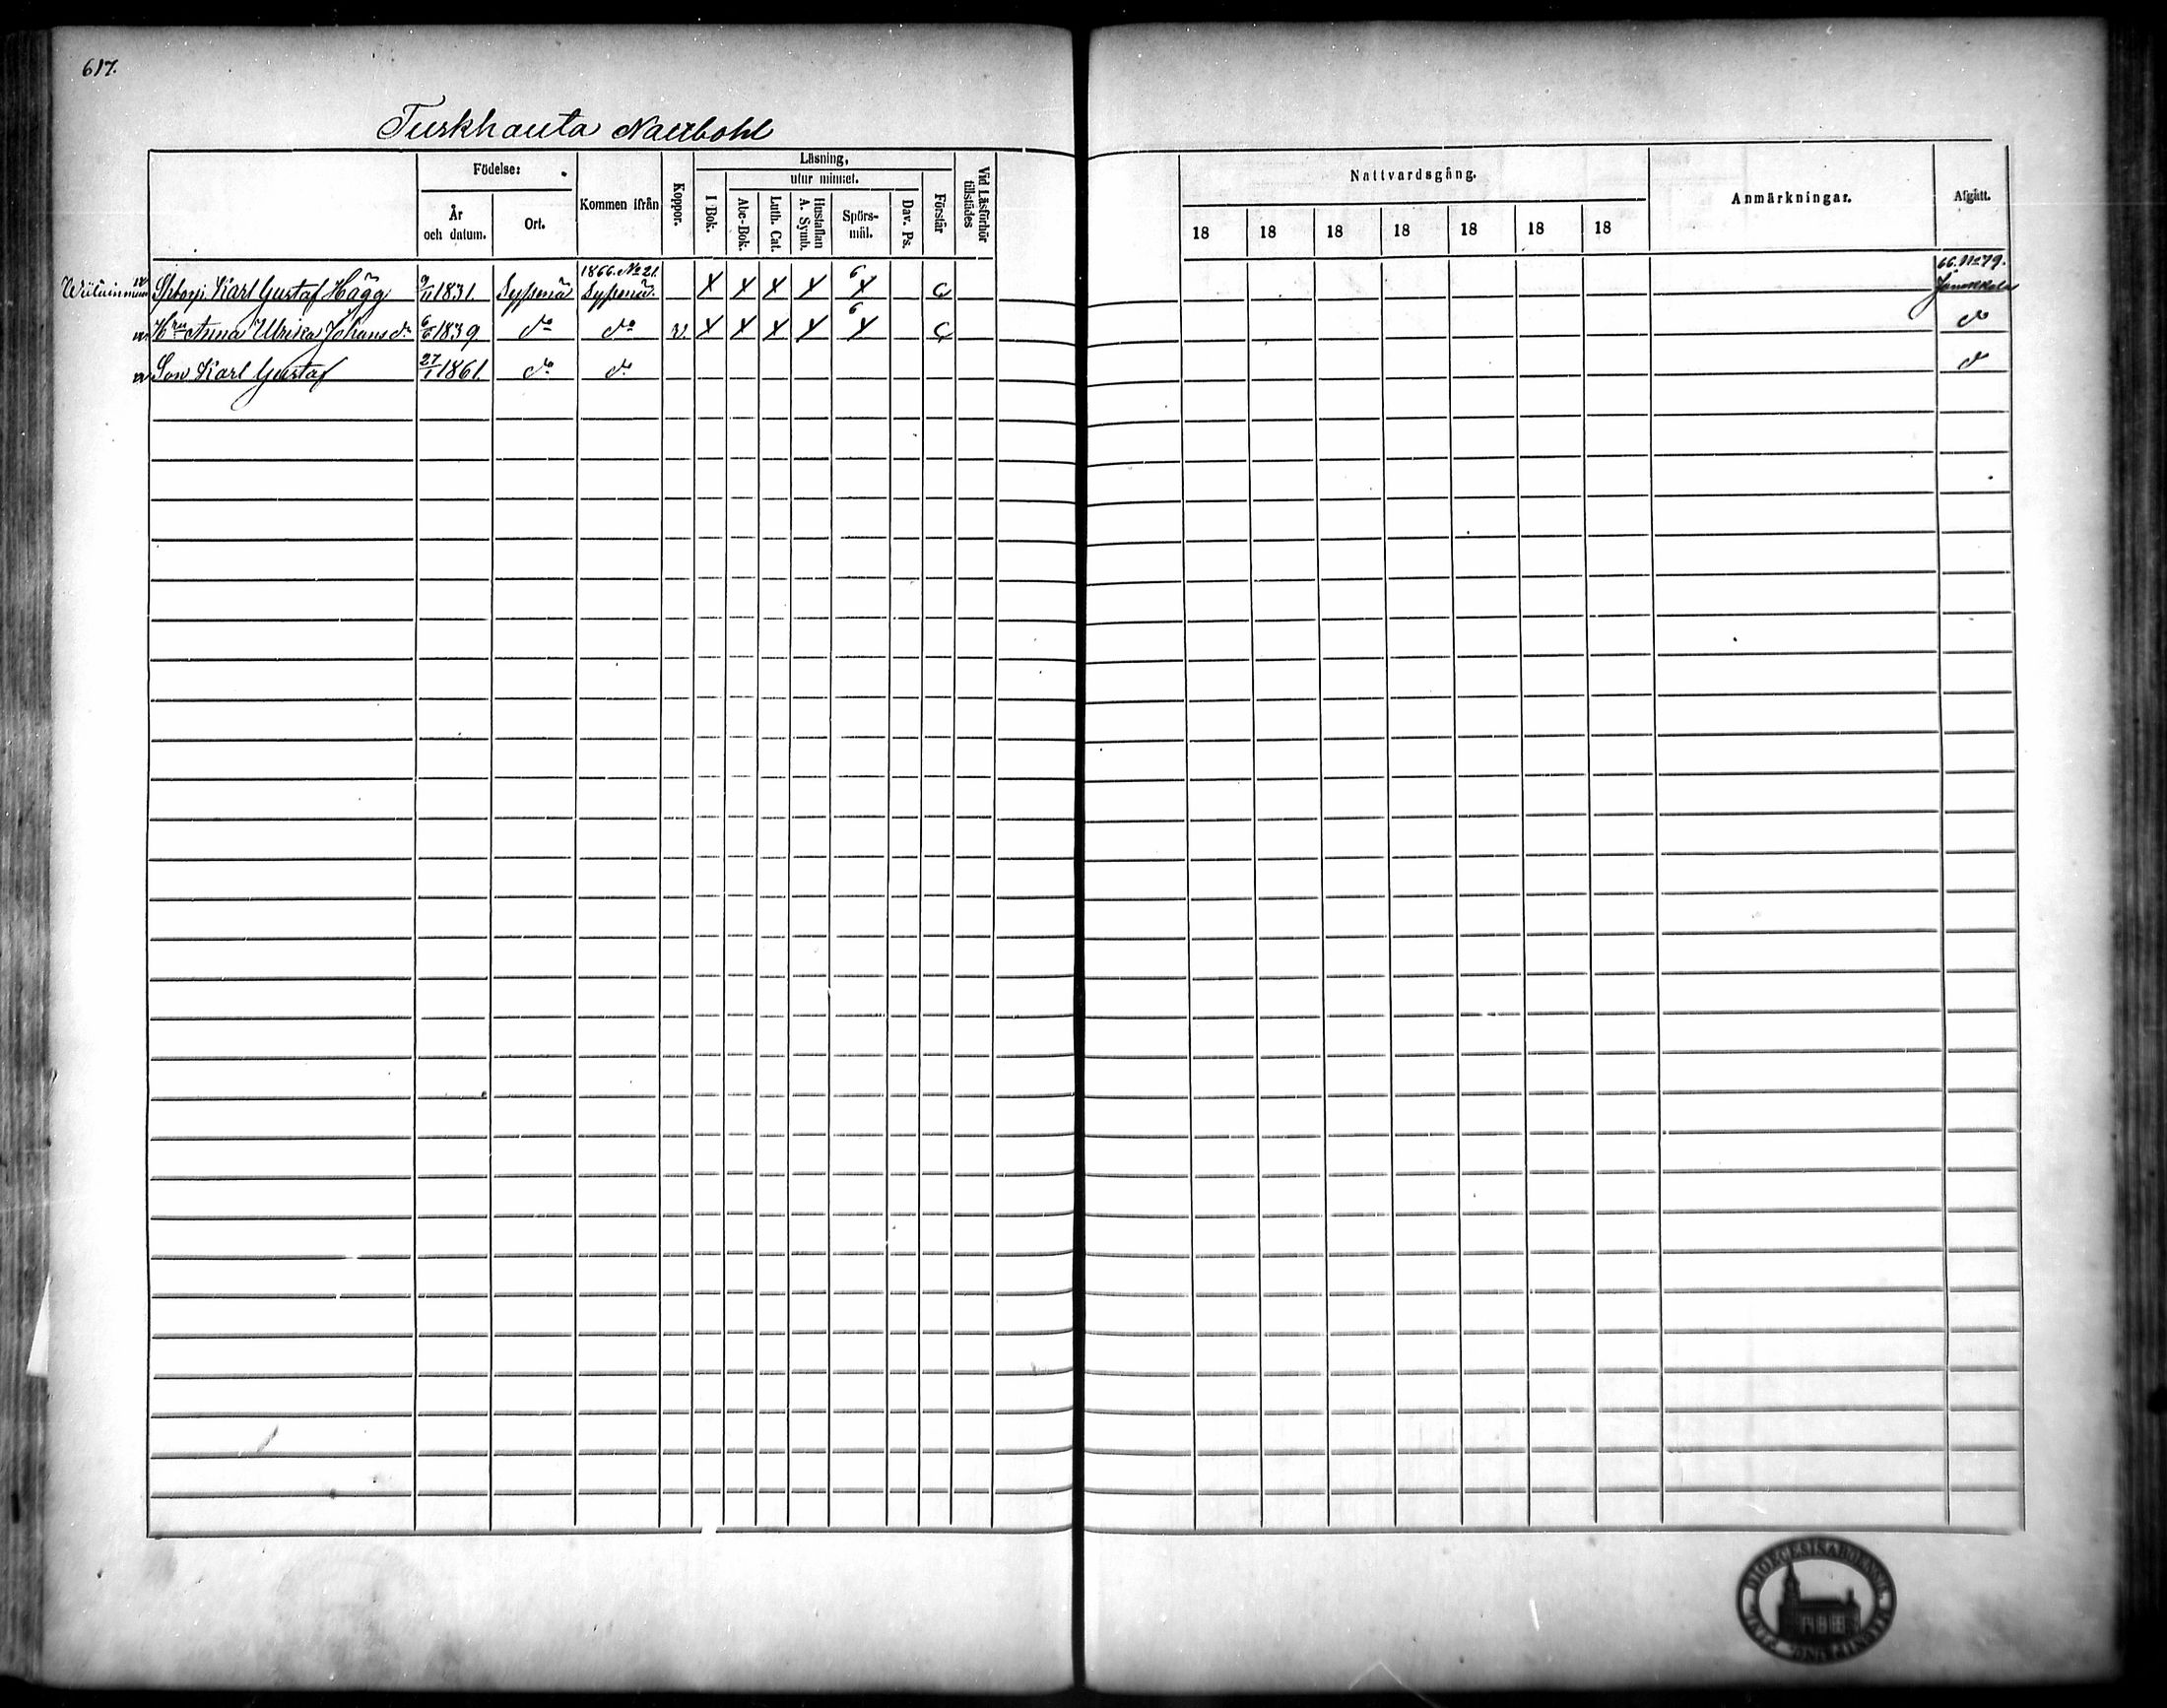 617.
Turkhauta Nautbohl
Födelse:
År
och datum.
Ort.
Kommen ifrån
Koppor.
Läsning,
utur minnet.
I Bok.
Abc-Bok.
Luth. Cat.
Hustaflan
A. Symb.
Spörs-
mål.
Dav. Ps.
Förstår
Vid Läsförhör
tillstädes
Nattvardsgång.
18 18 18 18 18 18 18
Anmärkningar.
Afgått.
1866. No 21.
66. No 79.
Karl Gustaf Hägg 9/11 1831. Syssmä Syssmä. X X X X 6 X C Janakkala
Hru Anna Ulrika Johansd. 6/6 1839. do do v. X X X X 6 X C do
Son Karl Gustaf 27/1 1861. do do do
DIOECESIS ABOENSIS